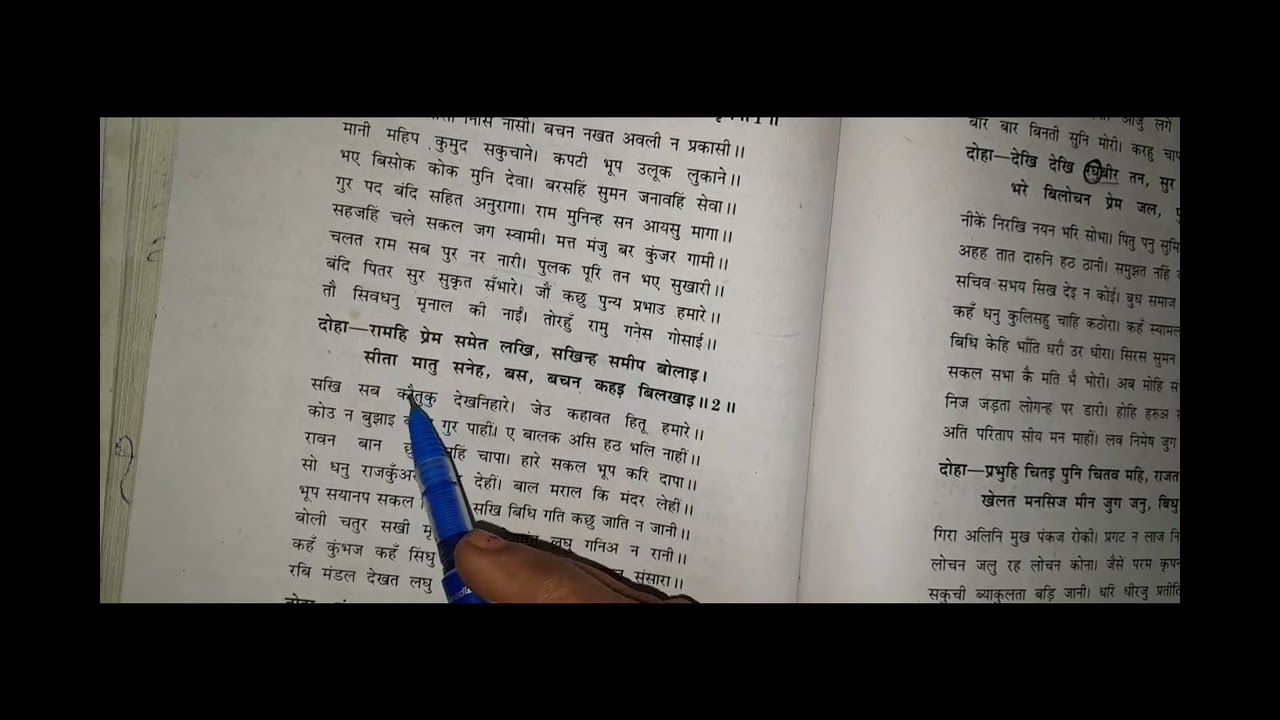 नासी। बचन नखत अवली न प्रकासी।।
मानी महिप कुमुद सकुचाने। कपटी भूप उलूक लुकाने।।
भए बिसोक कोक मुनि देवा। बरसहिं सुमन जनावहिं सेवा।।
गुर पद बंदि सहित अनुरागा। राम मुनिन्ह सन आयसु मागा।।
सहजहिं चले सकल जग स्वामी। मत्त मंजु बर कुंजर गामी।।
चलत राम सब पुर नर नारी। पुलक पूरि तन भए सुखारी।।
बंदि पितर सुर सुकृत सँभारे। जौं कछु पुन्य प्रभाउ हमारे।।
तौ सिवधनु मृनाल की नाईं। तोरहुँ रामु गनेस गोसाईं।।
दोहा—रामहि प्रेम समेत लखि, सखिन्ह समीप बोलाइ।
सीता मातु सनेह, बस, बचन कहइ बिलखाइ॥2॥
सखि सब कौतुकु देखनिहारे। जेउ कहावत हितू हमारे।।
कोउ न बुझाइ गुर पाहीं। ए बालक असि हठ भलि नाहीं।।
रावन बान चापा। हारे सकल भूप करि दापा।।
सो धनु देहीं। बाल मराल कि मंदर लेहीं।।
भूप सयानप सकल सखि बिधि गति कछु जाति न जानी।।
बोली चतुर सखी लघु गनिअ न रानी।।
कहँ कुंभज कहँ सिंधु संसारा।।
रबि मंडल देखत लघु
आजु लगे
बार बार बिनती सुनि मोरी। करहु
दोहा—देखि देखि रघुबीर तन, सुर
भरे बिलोचन प्रेम जल,
नीकें निरखि नयन भरि सोभा। पितु पनु
अहह तात दारुनि हठ ठानी। समुझत नहिं
सचिव सभय सिख देइ न कोई। बुध समाज
कहँ धनु कुलिसहु चाहि कठोरा। कहँ
बिधि केहि भाँति धरौं उर धीरा। सिरस सुमन
सकल सभा कै मति भै भोरी। अब मोहि
निज जड़ता लोगन्ह पर डारी। होहि हरुअ
अति परिताप सीय मन माहीं। लव निमेष जुग
दोहा—प्रभुहि चितइ पुनि चितव महि, राजत
खेलत मनसिज मीन जुग जनु, बिधु
गिरा अलिनि मुख पंकज रोकी। प्रगट न लाज
लोचन जलु रह लोचन कोना। जैसें परम
सकुची ब्याकुलता बड़ि जानी। धरि धीरजु